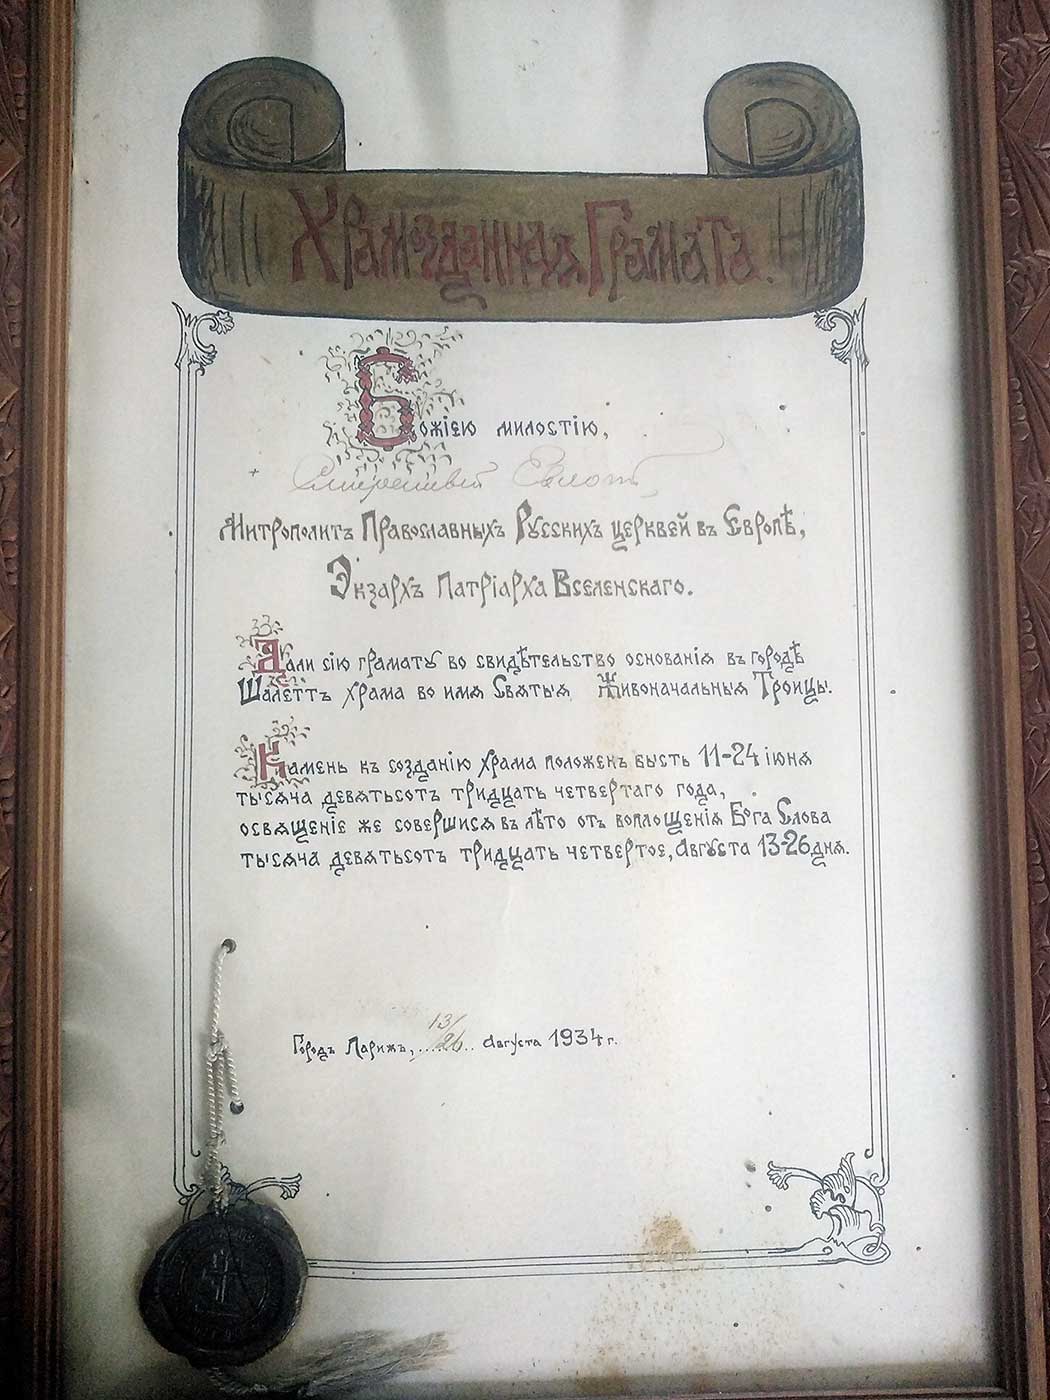 Храмозданная Грамата.
Божіею милостію,
+ Смиренный Евлогій
Митрополитъ Православныхъ Русскихъ церквей въ Европѣ,
Экзархъ Патріарха Вселенскаго.
Дали сію грамату во свидѣтельство основанія въ городѣ
Шалеттъ храма во имя Святыя Живоначальныя Троицы.
Камень къ созданію храма положенъ бысть 11-24 іюня
тысяча девятьсотъ тридцать четвертаго года,
освященіе же совершися въ лѣто отъ воплощенія Бога Слова
тысяча девятьсотъ тридцать четвертое, Августа 13-26 дня.
Городъ Парижъ, ..13/26.. Августа 1934 г.